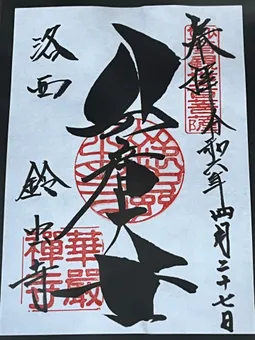 奉拝
令和六年四月二十七日
地蔵大士
洛西
鈴虫寺
華嚴
禪寺